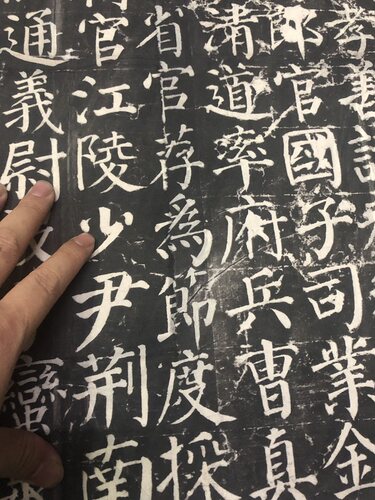 孝善詩
郎官國子司業金
清道率府兵曹真
省官荐為節度採
官江陵少尹荆南
通義尉没蠻